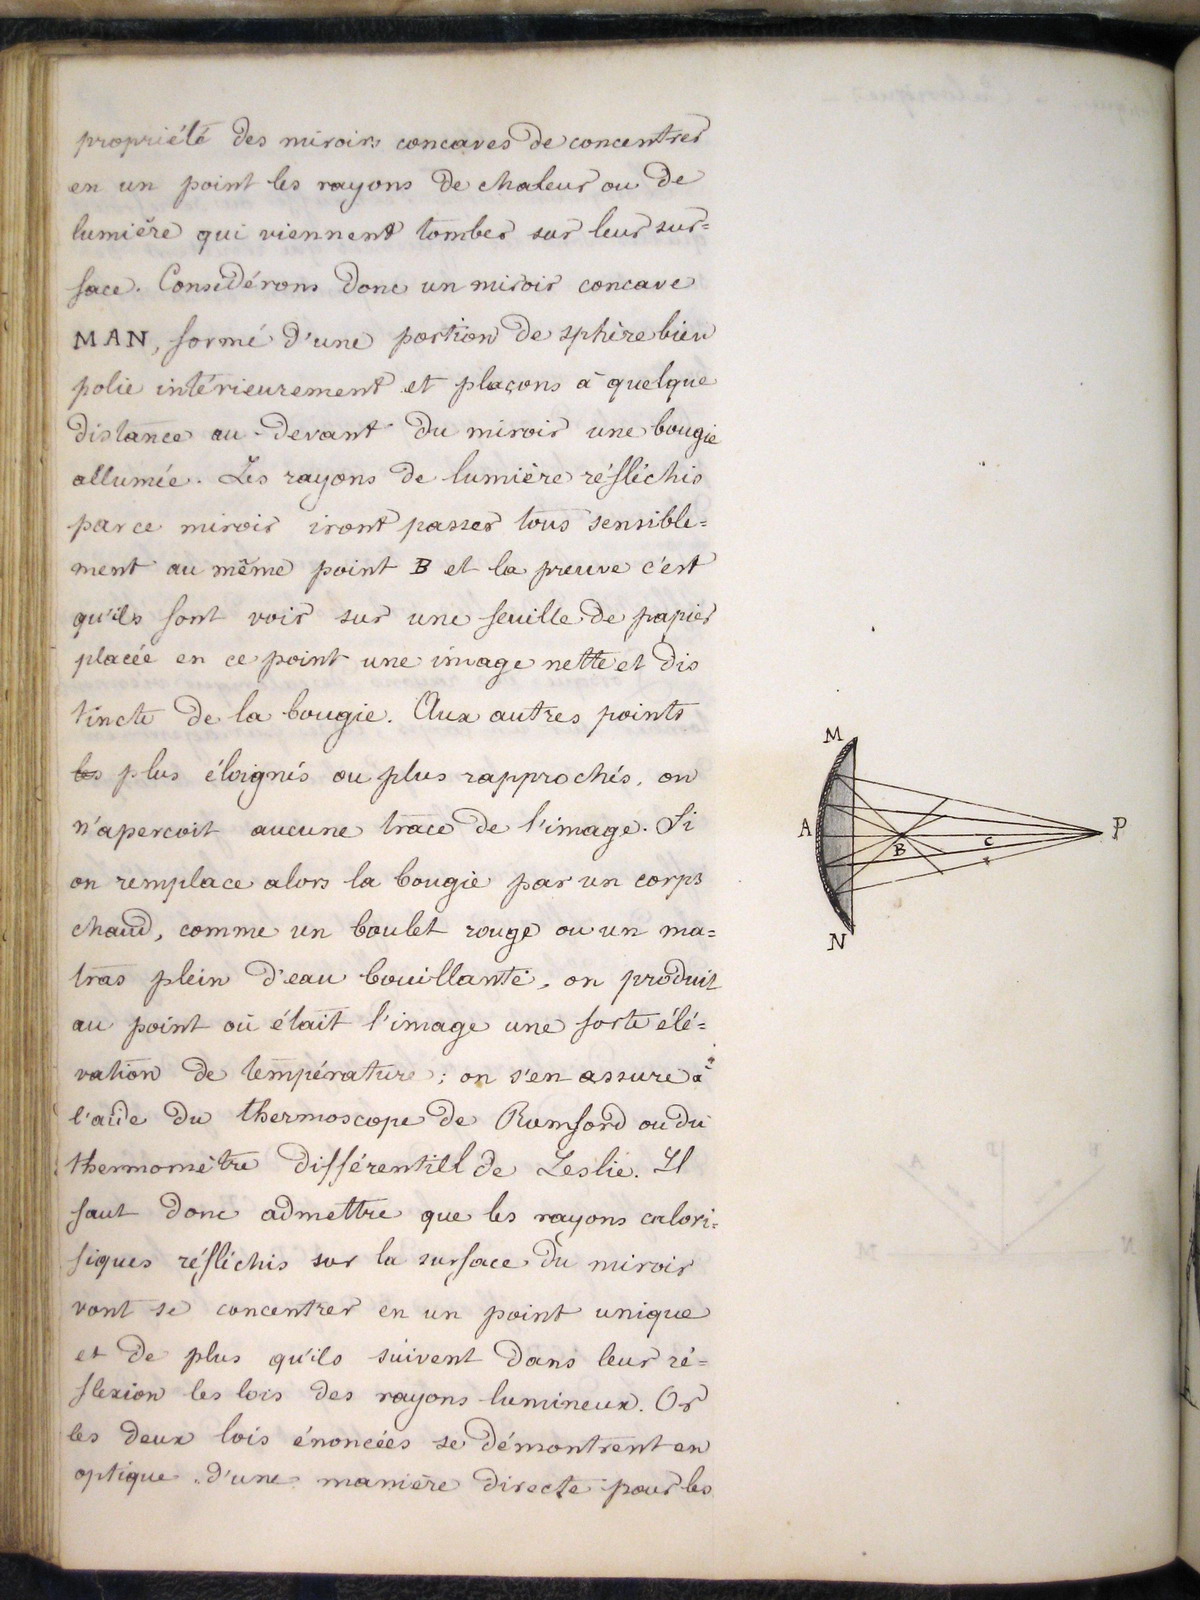 propriété des miroirs concaves de concentrer
en un point les rayons de chaleur ou de
lumière qui viennent tomber sur leur sur=
face. Considérons donc un miroir concave
MAN, formé d'une portion de sphère bien
polie intérieurement et plaçons à quelque
distance au-devant du miroir une bougie
allumée. Les rayons de lumière réfléchis
par ce miroir iront passer tous sensible=
ment au même point B et la preuve c'est
qu'ils font voir sur une feuille de papier
placée en ce point une image nette et dis
tincte de la bougie. Aux autres points
les plus éloignés ou plus rapprochés, on
n'aperçoit aucune trace de l'image. Si
on remplace alors la bougie par un corps
chaud, comme un boulet rouge ou un ma=
tras plein d'eau bouillante, on produit
au point où était l'image une forte élé=
vation de température; on s'en assure à
l'aide du thermoscope de Rumford ou du
thermomètre différentiell de Leslie. Il
faut donc admettre que les rayons calori=
fiques réfléchis sur la surface du miroir
vont se concentrer en un point unique
et de plus qu'ils suivent dans leur ré=
flexion les lois des rayons lumineux. Or
les deux lois énoncées se démontrent en
optique d'une manière directe pour les
M
A
B
C
P
N